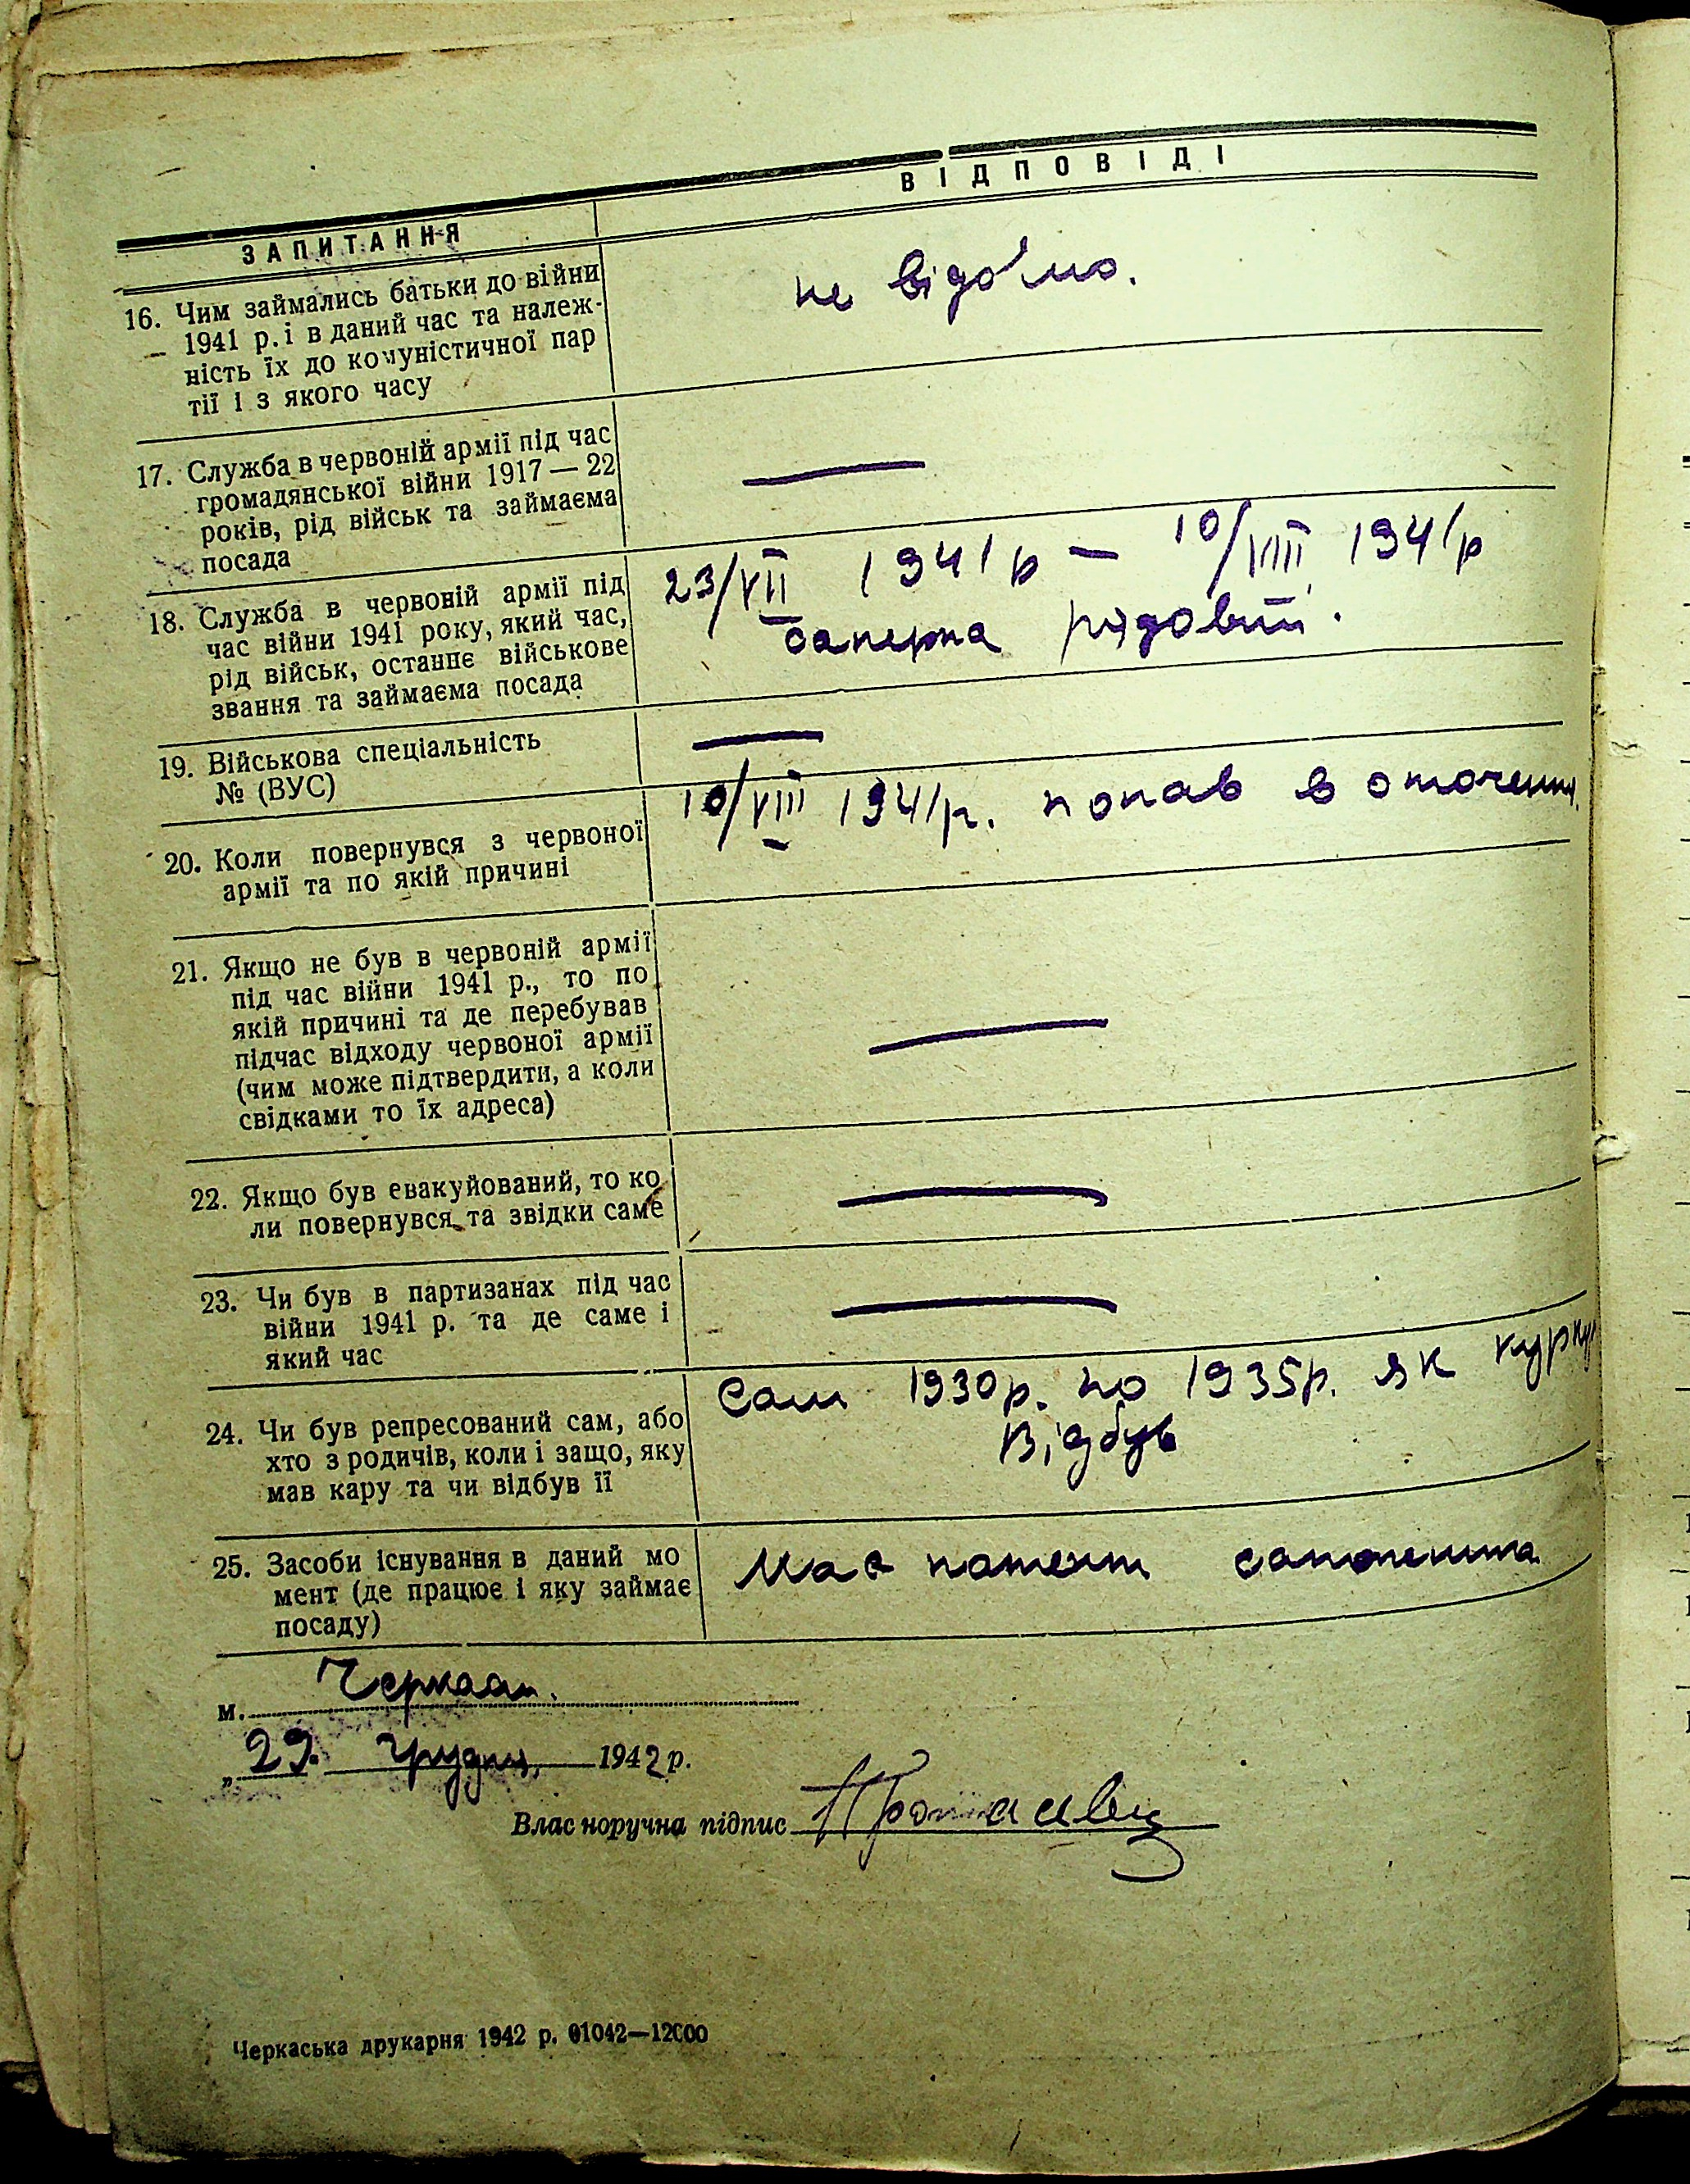 ЗАПИТАННЯ
ВІДПОВІДІ
16. Чим займались батьки до війни
1941 р. і в даний час та належ-
ність їх до комуністичної пар
тії і з якого часу
не відомо.
17. Служба в червоній армії під час
громадянської війни 1917 — 22
років, рід військ та займаєма
посада
—
18. Служба в червоній армії під
час війни 1941 року, який час,
рід військ, останнє військове
звання та займаєма посада
23/VII 1941 р — 10/VIII 1941 р
саперна рядовий.
19. Військова спеціальність
№ (ВУС)
—
20. Коли повернувся з червоної
армії та по якій причині
10/VIII 1941 р. попав в оточення.
21. Якщо не був в червоній армії
під час війни 1941 р., то по
якій причині та де перебував
підчас відходу червоної армії
(чим може підтвердити, а коли
свідками то їх адреса)
—
22. Якщо був евакуйований, то ко
ли повернувся та звідки саме
—
23. Чи був в партизанах під час
війни 1941 р. та де саме і
який час
—
24. Чи був репресований сам, або
хто з родичів, коли і защо, яку
мав кару та чи відбув її
Сам 1930 р. по 1935 р. як
Відбув
25. Засоби існування в даний мо
мент (де працює і яку займає
посаду)
Має патент
м. Черкаси.
„29. грудня, 1942 р.
Власноручна підпис
Черкаська друкарня 1942 р. 01042—12000